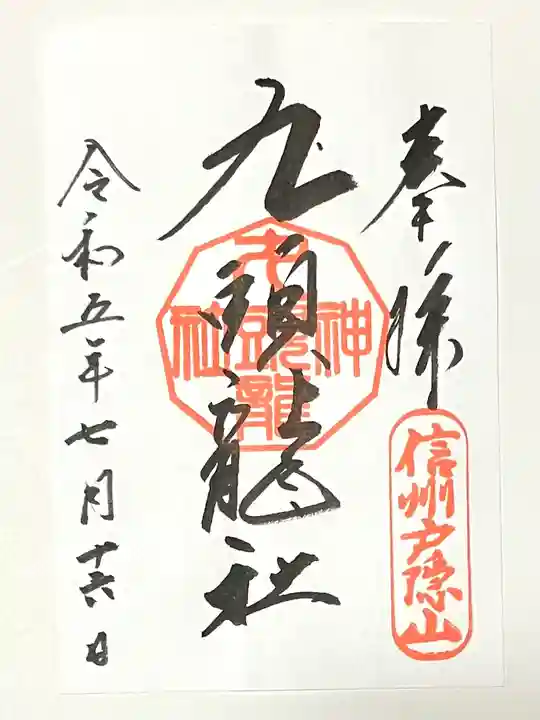 奉拝
信州戸隠山
九頭龍社
九頭龍神社
令和五年七月十六日